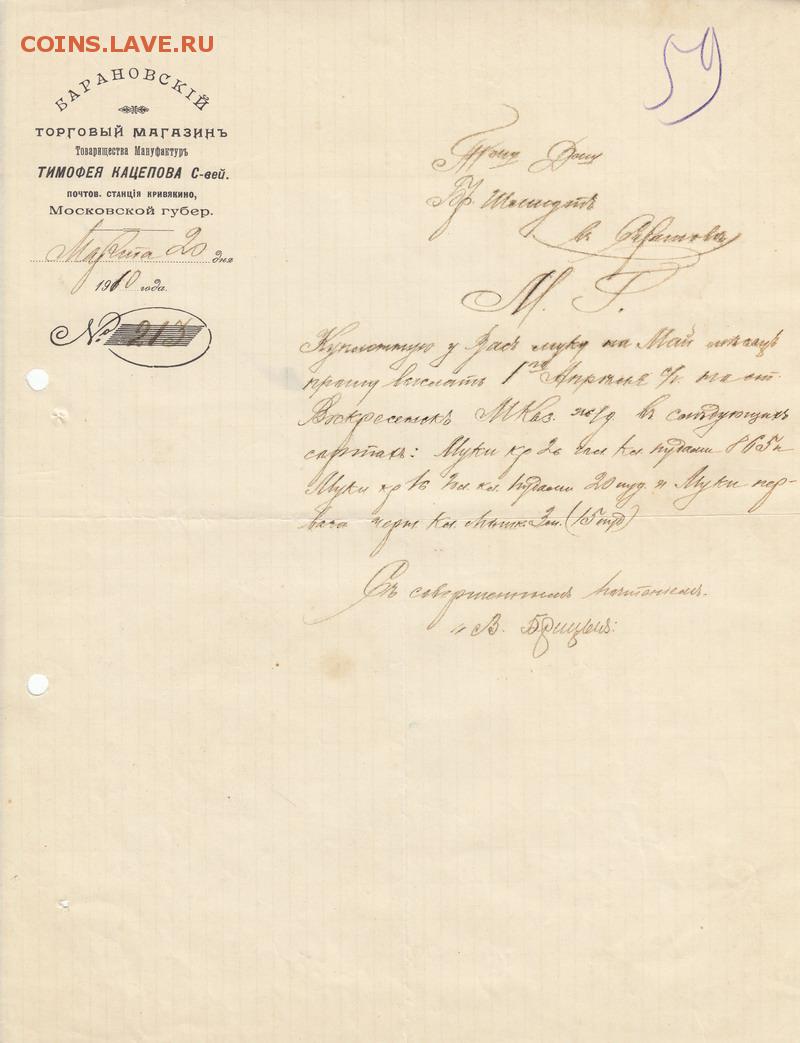 COINS.LAVE.RU
59
БАРАНОВСКІЙ
ТОРГОВЫЙ МАГАЗИНЪ
Товарищества Мануфактуръ
ТИМОФЕЯ КАЦЕПОВА С-вей.
ПОЧТОВ. СТАНЦІЯ КРИВЯКИНО,
Московской губер.
Марта 20 дня
1910 года.
№ 213
Дому
Бр. Шмидтъ
въ Саратовъ
М. Г.
Купленную у Васъ муку на Май месяцъ
прошу выслать 1го Апреля с/г. на ст.
Воскресенскъ МКаз. ж/д въ следующихъ
сортахъ: Муки кр 2с кл. пудами 865п
Муки кр 1с кл. пудами 20 пуд и Муки пер-
вача черн кл. (15 пуд)
Съ совершеннымъ почтеніемъ.
В.